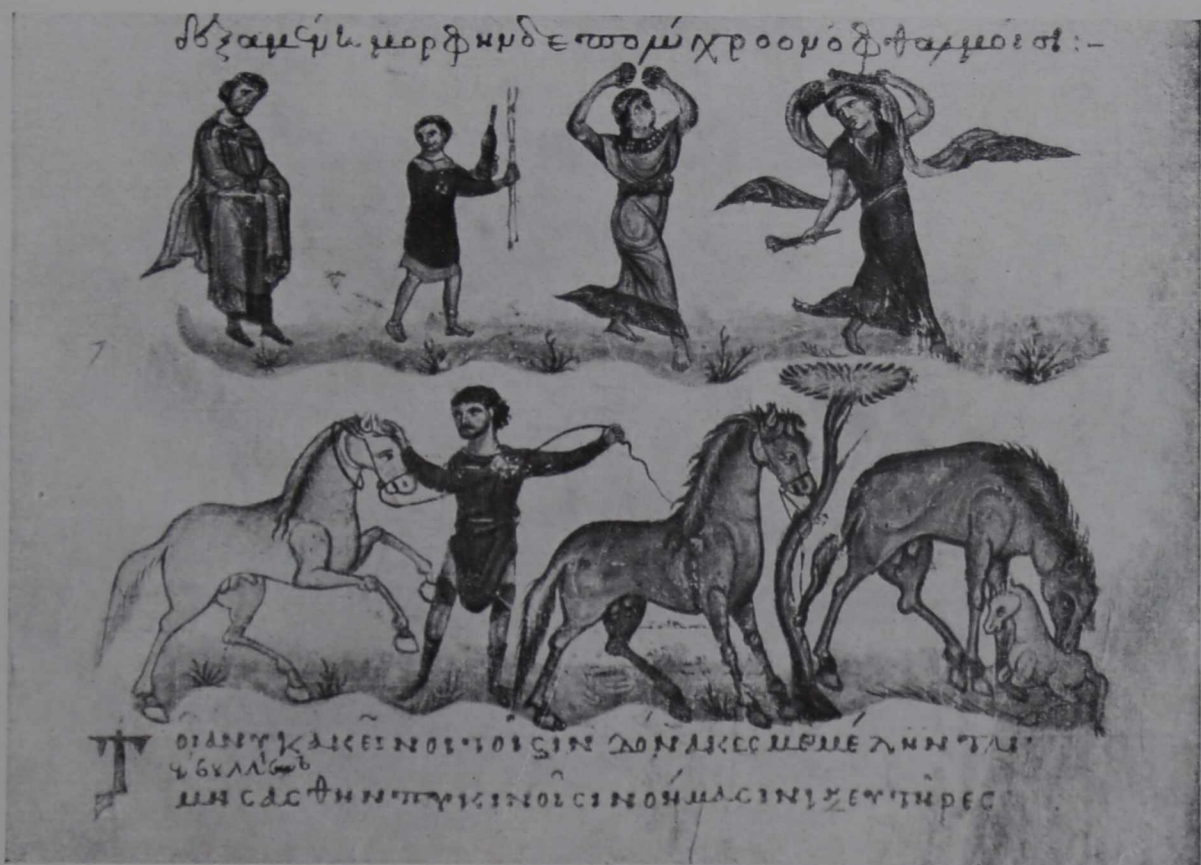 δεξαμένη μορφην δε πολύχροον ὀφθαλμοῖσι :–
Τοῖα νυ κακεῖνοι τοῖσιν δόνακες μεμέληνται
μησασθην πυκινοῖσι νοήμασιν ιξευτῆρες